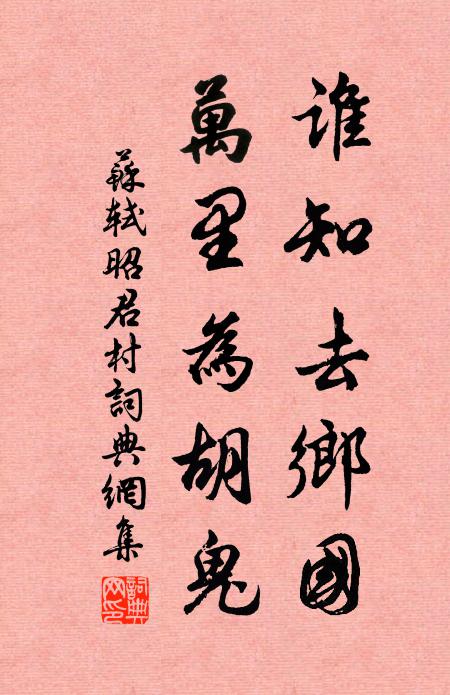 誰知去鄉國
萬里為胡鬼
蘇軾昭君村詞典網集
詞典網印